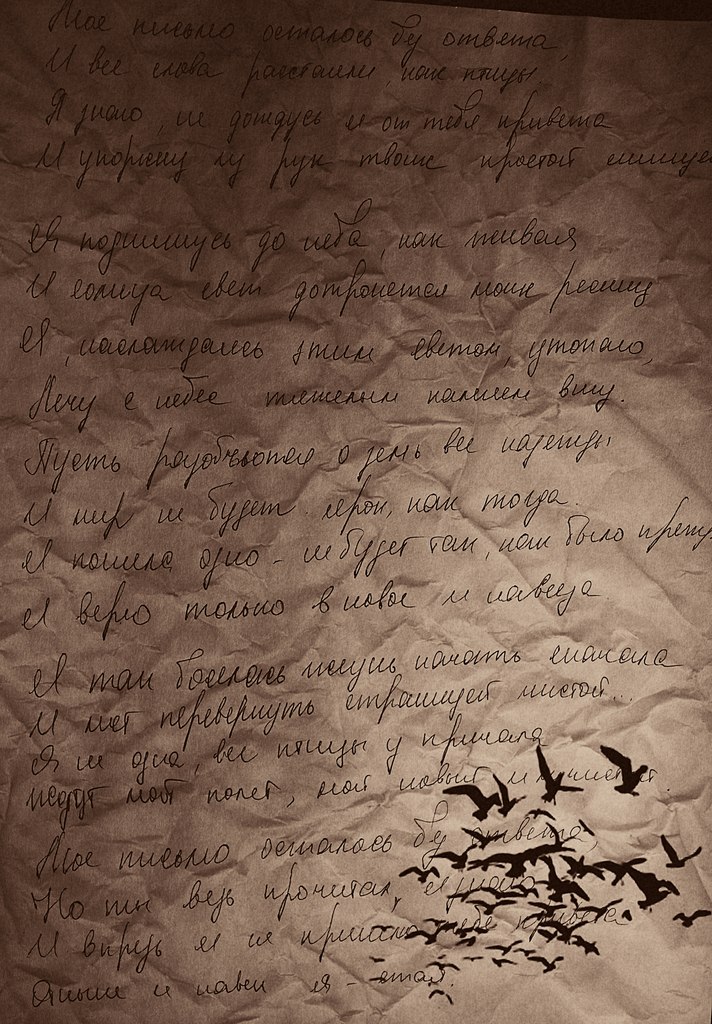 Мое письмо осталось без ответа,
И все слова растаяли, как птицы,
Я знаю, не дождусь я от тебя привета
И упорхну из рук твоих простой синицей
Я поднимусь до неба, как живая,
И солнца свет дотронется моих ресниц
Я, наслаждаясь этим светом, утопаю,
Лечу с небес тяжелым камнем вниз.
Пусть разобьются о земь все надежды
И мир не будет ярок, как тогда.
Я поняла одно - не будет так, как было прежде
Я верю только в новое и навсегда
Я так боялась жизнь начать сначала
И лист перевернуть страницей чистой...
Я не одна, все птицы у причала
Ждут мой полет, мой новый и
Мое письмо осталось без ответа,
Но ты ведь прочитал, я знаю
И впредь я не тебе привета
Отныне и навек я - стая.